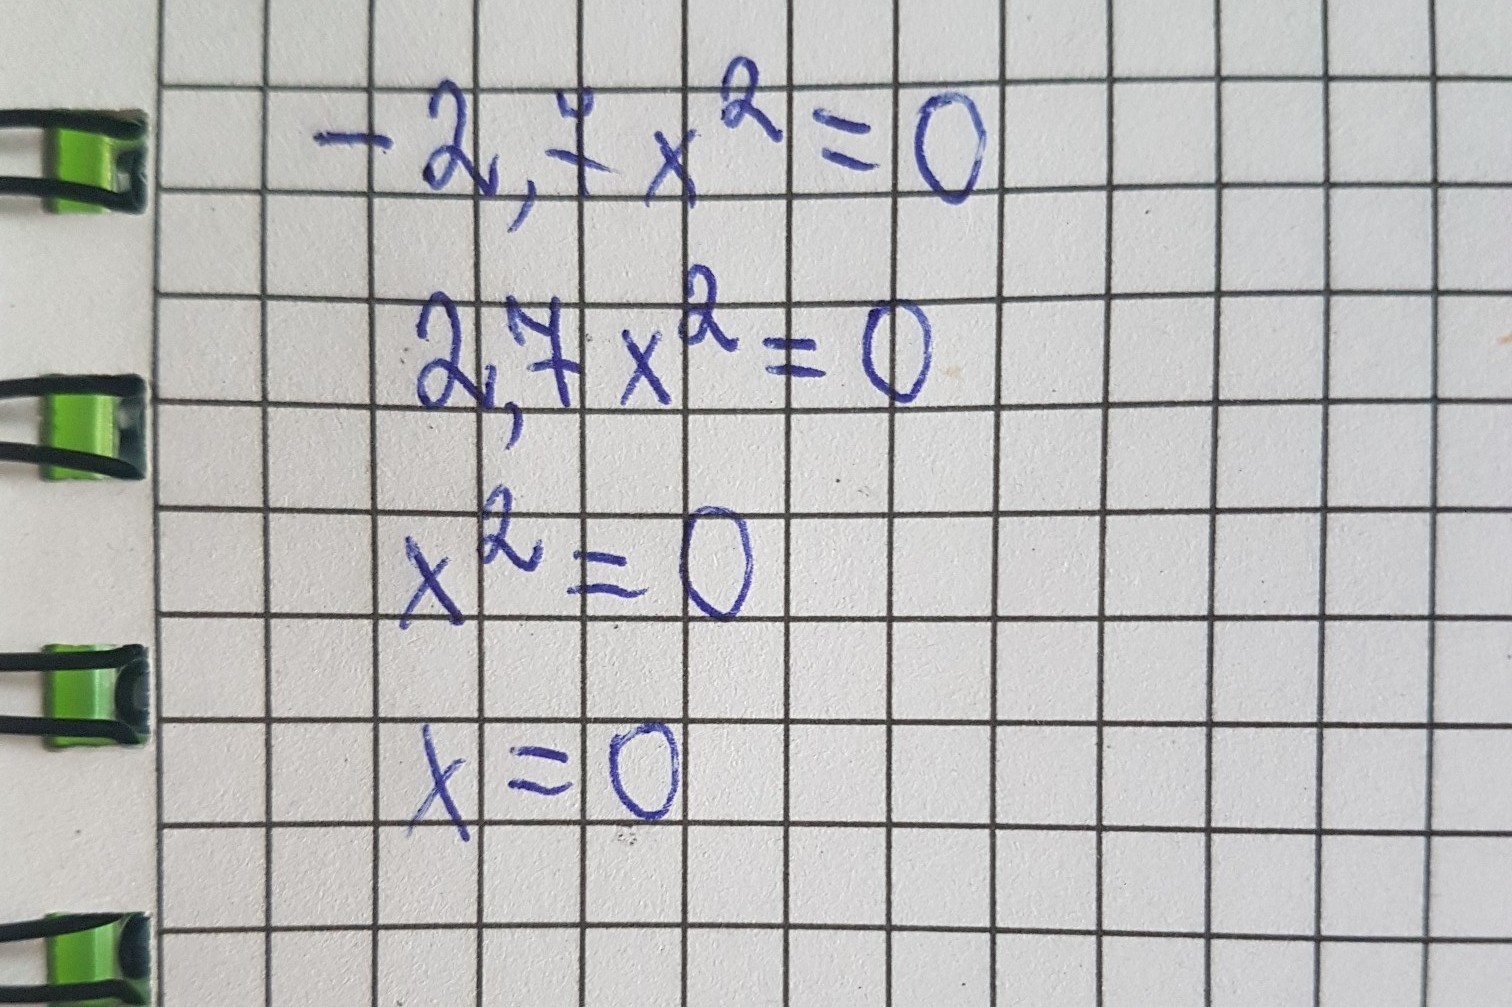 -2,7 x² = 0
2,7 x² = 0
x² = 0
x = 0